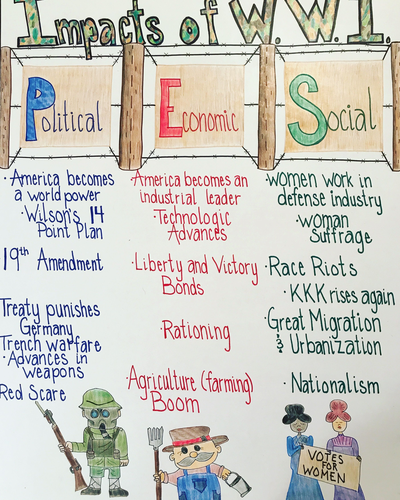 Impacts of W.W.I.
Political
Economic
Social
· America becomes
a world power
· Wilson's 14
Point Plan
19th Amendment
Treaty punishes
Germany
Trench warfare
· Advances in
weapons
Red Scare
America becomes an
industrial leader
· Technologic
Advances
· Liberty and Victory
Bonds
· Rationing
Agriculture (farming)
Boom
· Women work in
defense industry
· Woman
Suffrage
· Race Riots
· KKK rises again
· Great Migration
& Urbanization
· Nationalism
VOTES
FOR
WOMEN